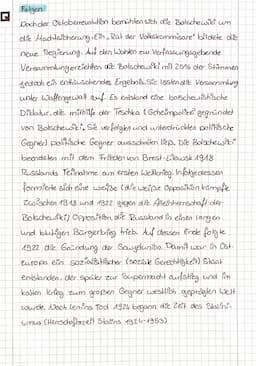 Folgen:
Nach der Oktoberrevolution bemühten sich die Bolschewiki um
die Machtsicherung. Ein "Rat der Volkskommissare" bildete die
neue Regierung. Auf den Wahlen zur Verfassungsgebende
Versammlung erzielten die Bolschewiki mit 20% der Stimmen
jedoch ein enttäuschendes Ergebnis. Sie lösten die Versammlung
unter Waffengewalt auf. Es entstand eine bolschewistische
Diktatur, die mithilfe der Tscheka (Geheimpolizei gegründet
von Bolschewiki. Sie verfolgten und unterdrückten politische
Gegner) politische Gegner ausschalten ließ. Die Bolschewiki
beendeten mit dem Frieden von Brest-Litowsk 1918
Russlands Teilnahme am ersten Weltkrieg. Infolgedessen
formierte sich eine weiße (die weiße Opposition kämpfte
zwischen 1918 und 1922 gegen die Alleinherrschaft der
Bolschewiki) Opposition, die Russland in einen langen
und blutigen Bürgerkrieg trieb. Auf dessen Ende folgte
1922 die Gründung der Sowjetunion. Damit war in Ost-
europa ein sozialistischer (soziale Gerechtigkeit) Staat
entstanden, der später zur Supermacht aufstieg und im
kalten Krieg zum großen Gegner westlich geprägten Welt
wurde. Nach Lenins Tod 1924 begann die Zeit des Stalini-
smus (Herrschaftszeit Stalins 1924-1953)